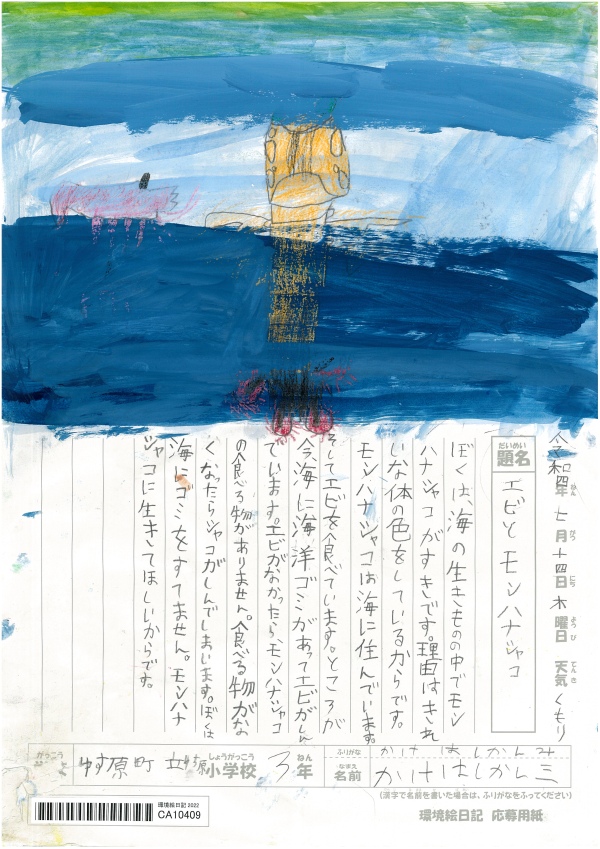 令和四年 七月十四日 木曜日 天気 くもり
ねん がつ にち ようび てんき
だいめい
題名
エビとモンハナシャコ
ぼくは、海の生きものの中でモン
ハナシャコがすきです。理由はきれ
いな体の色をしているからです。
モンハナシャコは海に住んでいます。
そしてエビを食べています。ところが
今、海に海洋ゴミがあってエビがしん
でいます。エビがなかったら、モンハナシャコ
の食べる物がありません。食べる物がな
くなったらシャコがしんでしまいます。ぼくは
海にゴミをすてません。モンハナ
シャコに生きてほしいからです。
がっこう
原町立
しょうがっこう
小学校
3年
ねん
ふりがな
なまえ
名前
(漢字で名前を書いた場合は、ふりがなをふってください)
環境絵日記 応募用紙
環境絵日記 2022
CA10409